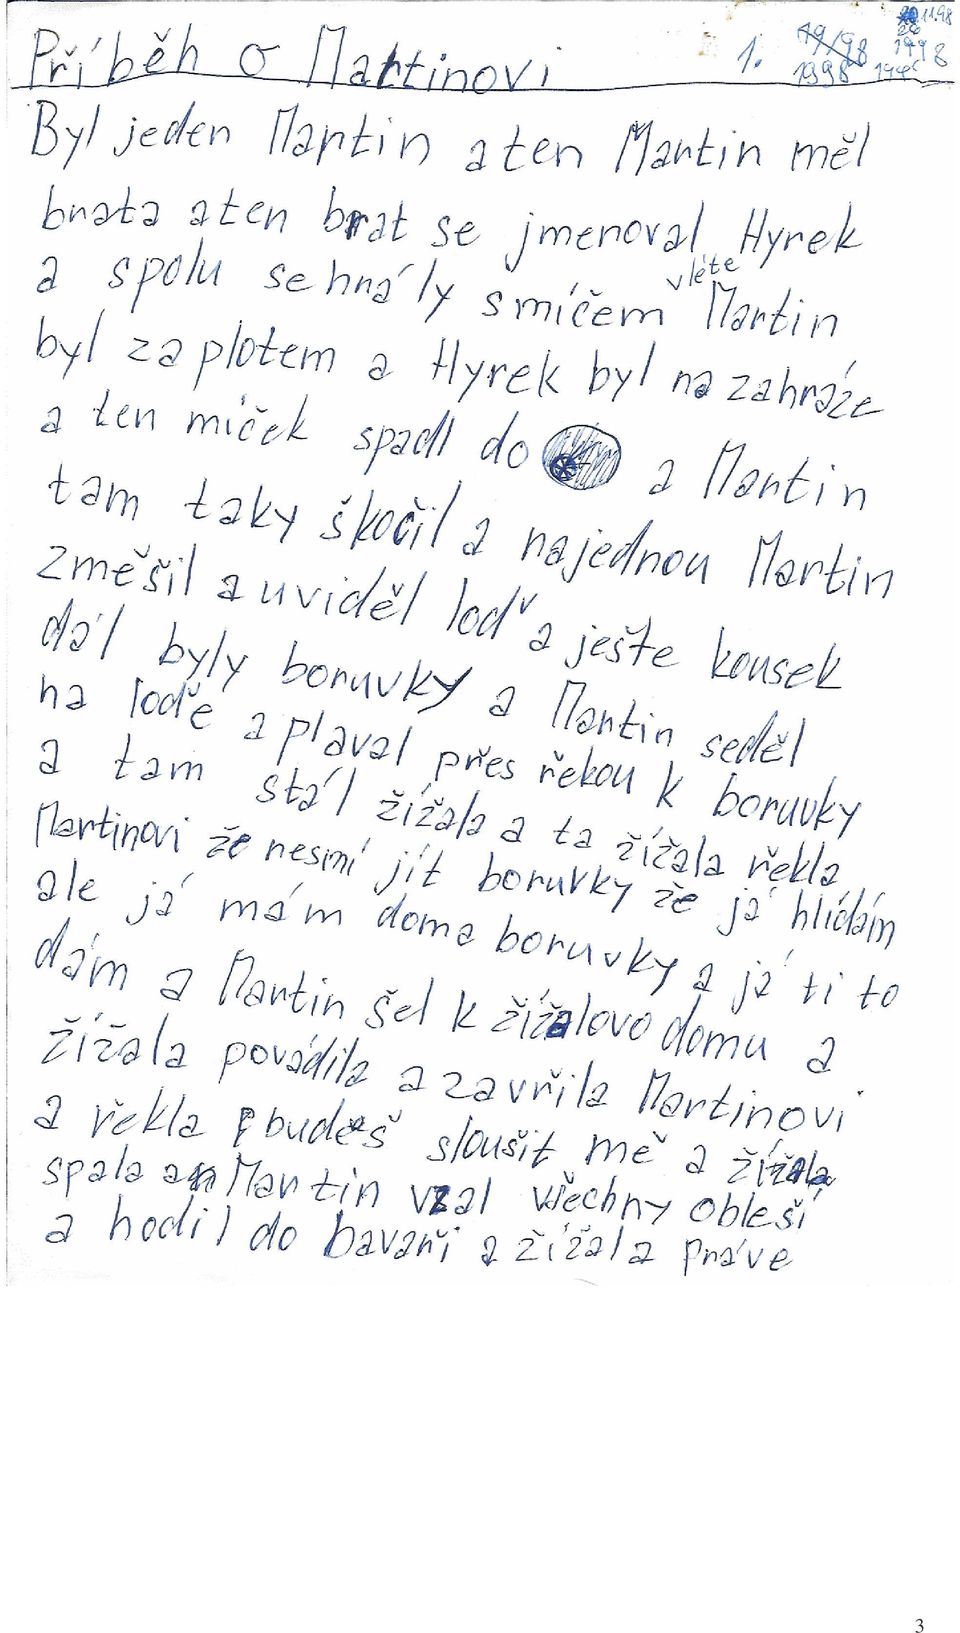 Příběh o Martinovi 1. 19/98 1998 11.98 26 1998
Byl jeden Martin a ten Martin měl
brata a ten brat se jmenoval Hyrek
a spolu se hrály smíčem v léte Martin
byl za plotem a Hyrek byl na zahráže
a ten míček spadl do a Martin
tam taky škočil a najednou Martin
změšil a uviděl loďˇa ješte kousek
dál byly boruvky a Martin seděl
na lodě a plaval přes řekou k boruvky
a tam stál žížala a ta žížala řekla
Martinovi že nesmí jít boruvky že já hlídám
ale já mám doma boruvky a já ti to
dám a Martin šel k žížalovo domu a
žížala povádila a zavřila Martinovi
a řekla budeš sloušit mě a žížala
spala a Martin vzal všechny obleši
a hodil do bavaři a žížala práve
3